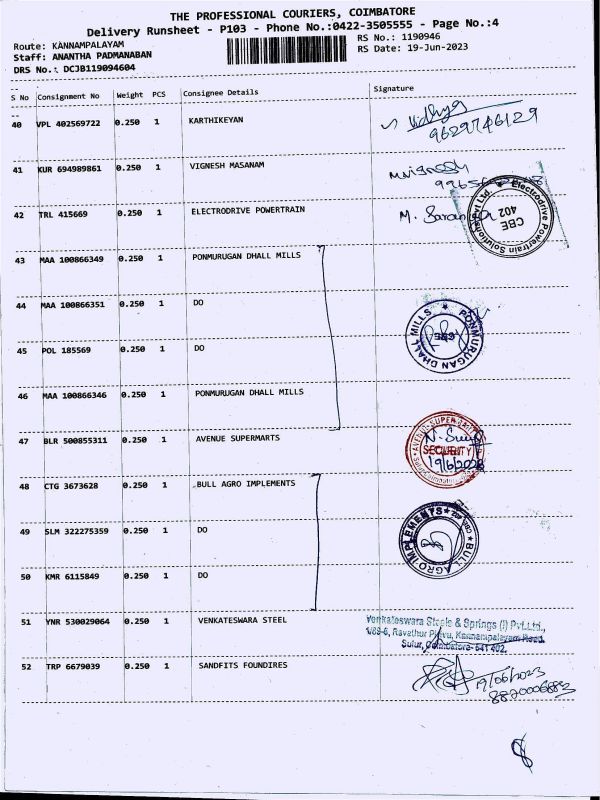 THE PROFESSIONAL COURIERS, COIMBATORE
Delivery Runsheet - P103 - Phone No.:0422-3505555 - Page No.:4
Route: KANNAMPALAYAM RS No.: 1190946
Staff: ANANTHA PADMANABAN RS Date: 19-Jun-2023
DRS No.: DCJB119094604
S No Consignment No Weight PCS Consignee Details Signature
40 VPL 402569722 0.250 1 KARTHIKEYAN Vidhya
9629746129
41 KUR 694989861 0.250 1 VIGNESH MASANAM
42 TRL 415669 0.250 1 ELECTRODRIVE POWERTRAIN
Electrodrive Powertrain Solutions Pvt Ltd.
CBE
402
43 MAA 100866349 0.250 1 PONMURUGAN DHALL MILLS
44 MAA 100866351 0.250 1 DO
PONMURUGAN DHALL MILLS
CBE
45 POL 185569 0.250 1 DO
46 MAA 100866346 0.250 1 PONMURUGAN DHALL MILLS
47 BLR 500855311 0.250 1 AVENUE SUPERMARTS
SECURITY
19/6/2023
48 CTG 3673628 0.250 1 BULL AGRO IMPLEMENTS
49 SLM 322275359 0.250 1 DO
BULL AGRO IMPLEMENTS
50 KMR 6115849 0.250 1 DO
51 YNR 530029064 0.250 1 VENKATESWARA STEEL Venkateswara Steels & Springs (I) Pvt.Ltd.,
Kannampalayam Road,
Sulur, Coimbatore- 641 402.
52 TRP 6679039 0.250 1 SANDFITS FOUNDIRES
19/06/2023